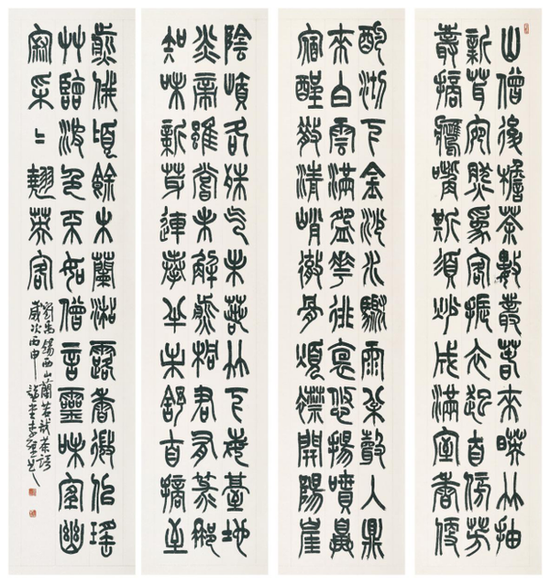 山僧後檐茶數叢春來暎竹抽
新茸宛然爲客振衣起自傍芳
叢摘鷹嘴斯須炒成滿室香便
酌沏下金沙水驟雨松聲入鼎
來白雲滿盌花徘徊悠揚噴鼻
宿酲散清峭徹骨煩襟開陽崖
陰嶺各殊氣未若竹下莓苔地
炎帝雖嘗未解煎桐君有箓那
知味新芽連拳半未舒自摘至
煎俄頃餘木蘭沾露香微似瑤
草臨波色不如僧言靈味宜幽
寂采〻翹英客
劉禹錫西山蘭若試茶歌
歲次丙申